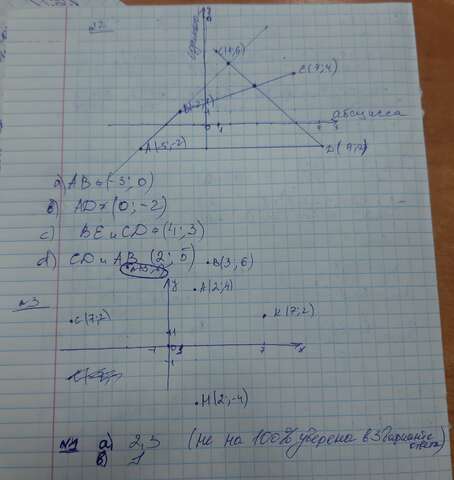 №2.
C(1;6)
E(7;4)
B(-2;1)
абсцисса
0 1
A(-5;-2)
a) AB (-3; 0)
b) AD (0; -2)
c) BE и CD (4; 3)
d) CD и AB (2; 5)
B(3; 6)
№3
y
A(2;4)
C(7;2)
K(7;2)
1
-1 0 1 7 x
-1
H(2;-4)
№1 a) 2,3 (не на 100% уверена в 3 варианте ответа)
b) 1